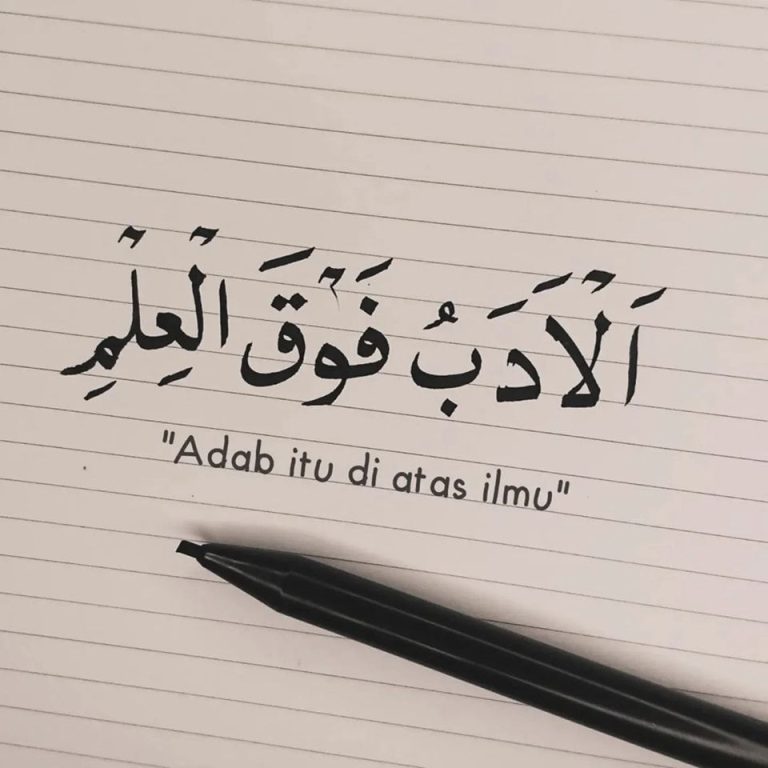 اَلْاَدَبُ فَوْقَ الْعِلْمِ
"Adab itu di atas ilmu"